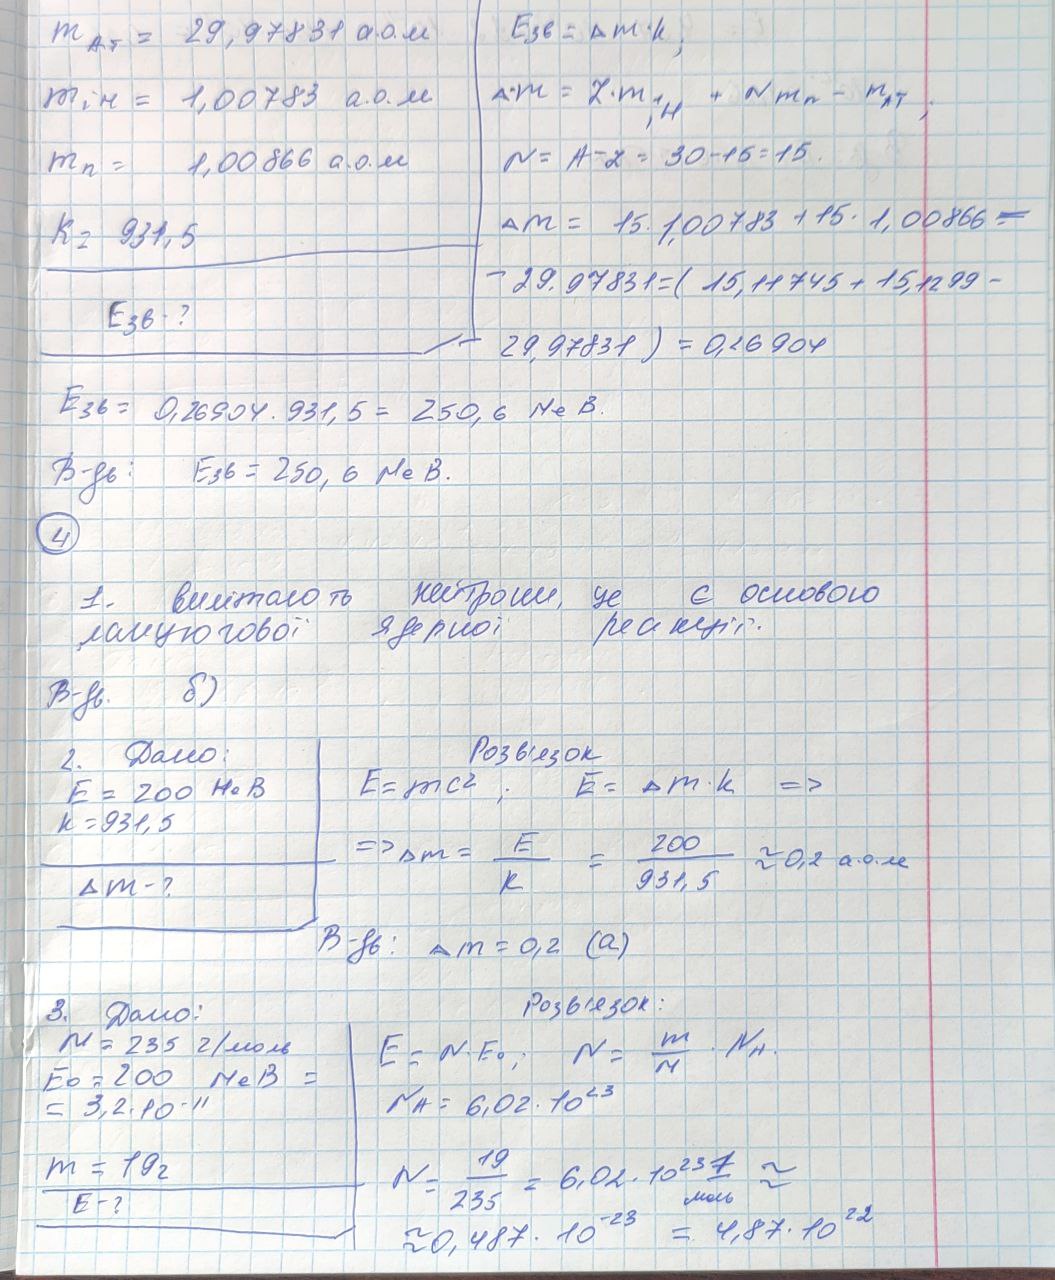 m_ат = 29,97831 а.о.м
m₁н = 1,00783 а.о.м
m_n = 1,00866 а.о.м
K = 931,5
Eзв - ?
Eзв = Δm·k;
Δm = Z·m₁н + N m_n - m_ат;
N = A-Z = 30-15=15.
Δm = 15·1,00783 + 15·1,00866 -
- 29,97831=(15,11745 + 15,1299 -
- 29,97831) = 0,26904
Eзв = 0,26904·931,5 = 250,6 МеВ.
В-дь: Eзв = 250,6 МеВ.
4
1. вилітають нейтрони, це є основою
ланцюгової ядерної реакції.
В-дь. б)
2. Дано:
E = 200 МеВ
k = 931,5
Δm - ?
Розв'язок
E = mc²; E = Δm·k =>
=> Δm = E/k = 200/931,5 ≈ 0,2 а.о.м
В-дь: Δm = 0,2 (а)
3. Дано:
M = 235 г/моль
E₀ = 200 МеВ =
= 3,2·10⁻¹¹
m = 19г
E - ?
Розв'язок:
E = N·E₀; N = m/M · N_A.
N_A = 6,02·10²³
N = 19/235 = 6,02·10²³ 1/моль ≈
≈ 0,487·10⁻²³ = 4,87·10²²